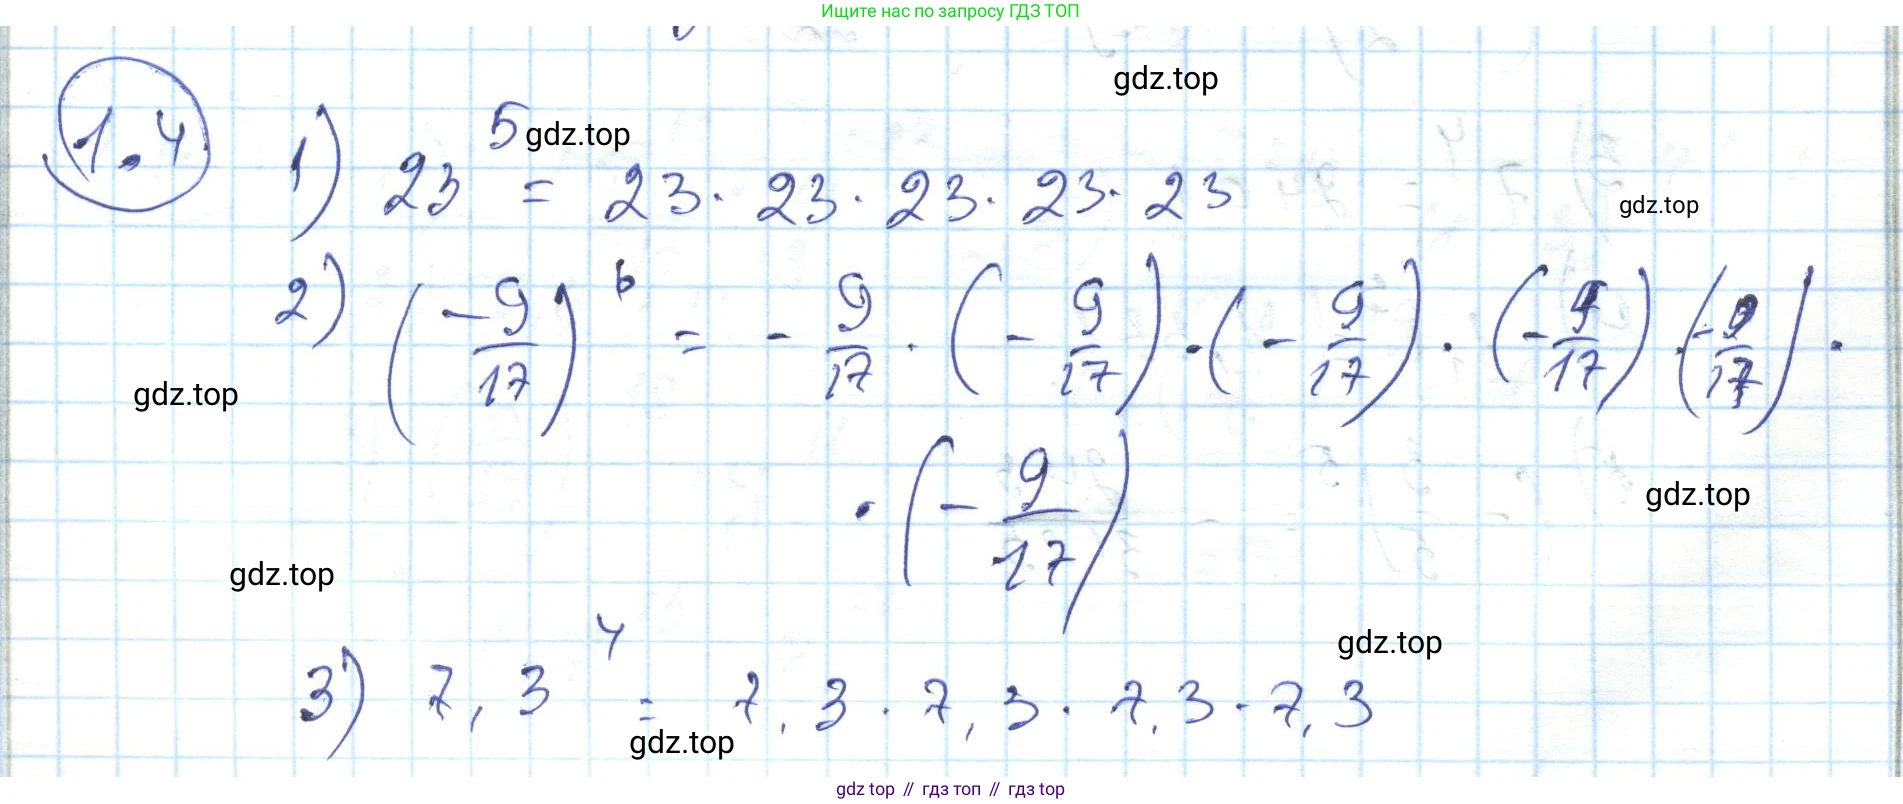 Ищите нас по запросу ГДЗ ТОП
gdz.top
1.4 1) 23^5 = 23 · 23 · 23 · 23 · 23
gdz.top
gdz.top
2) (-9/17)^6 = - 9/17 · (- 9/17) · (- 9/17) · (- 9/17) · (- 9/17) ·
gdz.top
· (- 9/17)
gdz.top
gdz.top
gdz.top
3) 7,3^4 = 7,3 · 7,3 · 7,3 · 7,3
gdz.top
gdz.top // гдз топ // гдз top